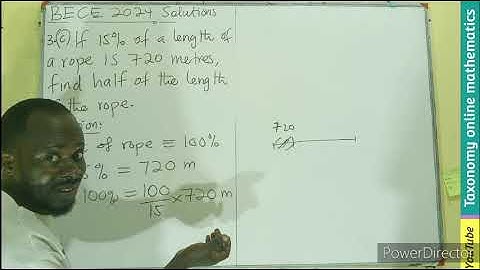 BECE 2024 Solutions
3.(c) If 15% of a length of
a rope is 720 metres,
find half of the length
the rope.
of rope ≡ 100%
% = 720 m
100% = 100/15 × 720 m
720
Taxonomy online mathematics
YouTube
PowerDirector